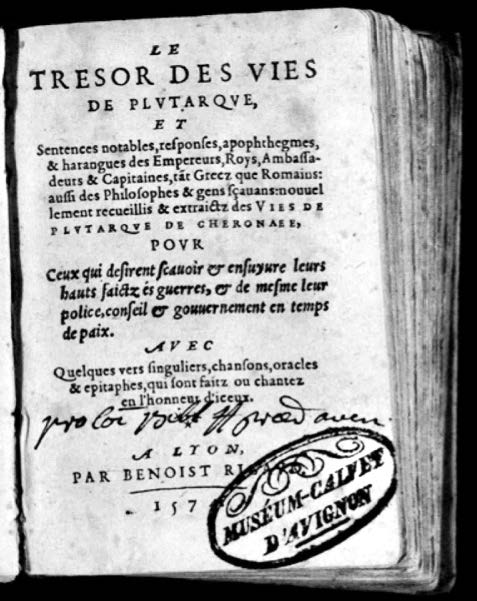 LE
TRESOR DES VIES
DE PLVTARQVE,
ET
Sentences notables, responses, apophthegmes,
& harangues des Empereurs, Roys, Ambassa-
deurs & Capitaines, tãt Grecz que Romains:
aussi des Philosophes & gens sçauans: nouuel
lement recueillis & extraictz des VIES DE
PLVTARQVE DE CHERONAEE,
POVR
Ceux qui desirent scauoir & ensuyure leurs
hauts faictz és guerres, & de mesme leur
police, conseil & gouuernement en temps
de paix.
AVEC
Quelques vers singuliers, chansons, oracles
& epitaphes, qui sont faitz ou chantez
en l'honneur d'iceux.
A LYON,
PAR BENOIST
157
MUSÉUM-CALVET
D'AVIGNON